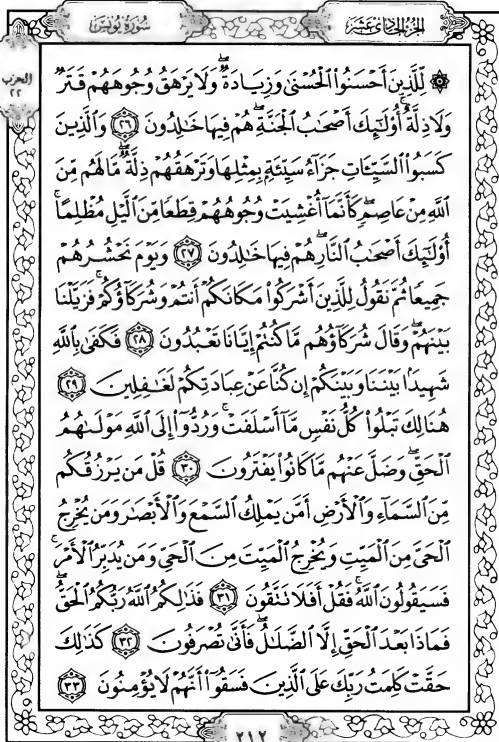 الجزء الحادى عشر
سورة يونس
الحزب
٢٢
۞ لِّلَّذِينَ أَحْسَنُوا۟ ٱلْحُسْنَىٰ وَزِيَادَةٌ ۖ وَلَا يَرْهَقُ وُجُوهَهُمْ قَتَرٌ
وَلَا ذِلَّةٌ ۚ أُو۟لَـٰٓئِكَ أَصْحَـٰبُ ٱلْجَنَّةِ ۖ هُمْ فِيهَا خَـٰلِدُونَ ﴿٢٦﴾ وَٱلَّذِينَ
كَسَبُوا۟ ٱلسَّيِّـَٔاتِ جَزَآءُ سَيِّئَةٍۭ بِمِثْلِهَا وَتَرْهَقُهُمْ ذِلَّةٌ ۖ مَّا لَهُم مِّنَ
ٱللَّهِ مِنْ عَاصِمٍ ۖ كَأَنَّمَآ أُغْشِيَتْ وُجُوهُهُمْ قِطَعًا مِّنَ ٱلَّيْلِ مُظْلِمًا ۚ
أُو۟لَـٰٓئِكَ أَصْحَـٰبُ ٱلنَّارِ ۖ هُمْ فِيهَا خَـٰلِدُونَ ﴿٢٧﴾ وَيَوْمَ نَحْشُرُهُمْ
جَمِيعًا ثُمَّ نَقُولُ لِلَّذِينَ أَشْرَكُوا۟ مَكَانَكُمْ أَنتُمْ وَشُرَكَآؤُكُمْ ۚ فَزَيَّلْنَا
بَيْنَهُمْ ۖ وَقَالَ شُرَكَآؤُهُم مَّا كُنتُمْ إِيَّانَا تَعْبُدُونَ ﴿٢٨﴾ فَكَفَىٰ بِٱللَّهِ
شَهِيدًۢا بَيْنَنَا وَبَيْنَكُمْ إِن كُنَّا عَنْ عِبَادَتِكُمْ لَغَـٰفِلِينَ ﴿٢٩﴾
هُنَالِكَ تَبْلُوا۟ كُلُّ نَفْسٍ مَّآ أَسْلَفَتْ ۚ وَرُدُّوٓا۟ إِلَى ٱللَّهِ مَوْلَىٰهُمُ
ٱلْحَقِّ ۖ وَضَلَّ عَنْهُم مَّا كَانُوا۟ يَفْتَرُونَ ﴿٣٠﴾ قُلْ مَن يَرْزُقُكُم
مِّنَ ٱلسَّمَآءِ وَٱلْأَرْضِ أَمَّن يَمْلِكُ ٱلسَّمْعَ وَٱلْأَبْصَـٰرَ وَمَن يُخْرِجُ
ٱلْحَىَّ مِنَ ٱلْمَيِّتِ وَيُخْرِجُ ٱلْمَيِّتَ مِنَ ٱلْحَىِّ وَمَن يُدَبِّرُ ٱلْأَمْرَ ۚ
فَسَيَقُولُونَ ٱللَّهُ ۚ فَقُلْ أَفَلَا تَتَّقُونَ ﴿٣١﴾ فَذَٰلِكُمُ ٱللَّهُ رَبُّكُمُ ٱلْحَقُّ ۖ
فَمَاذَا بَعْدَ ٱلْحَقِّ إِلَّا ٱلضَّلَـٰلُ ۖ فَأَنَّىٰ تُصْرَفُونَ ﴿٣٢﴾ كَذَٰلِكَ
حَقَّتْ كَلِمَتُ رَبِّكَ عَلَى ٱلَّذِينَ فَسَقُوٓا۟ أَنَّهُمْ لَا يُؤْمِنُونَ ﴿٣٣﴾
٢١٢